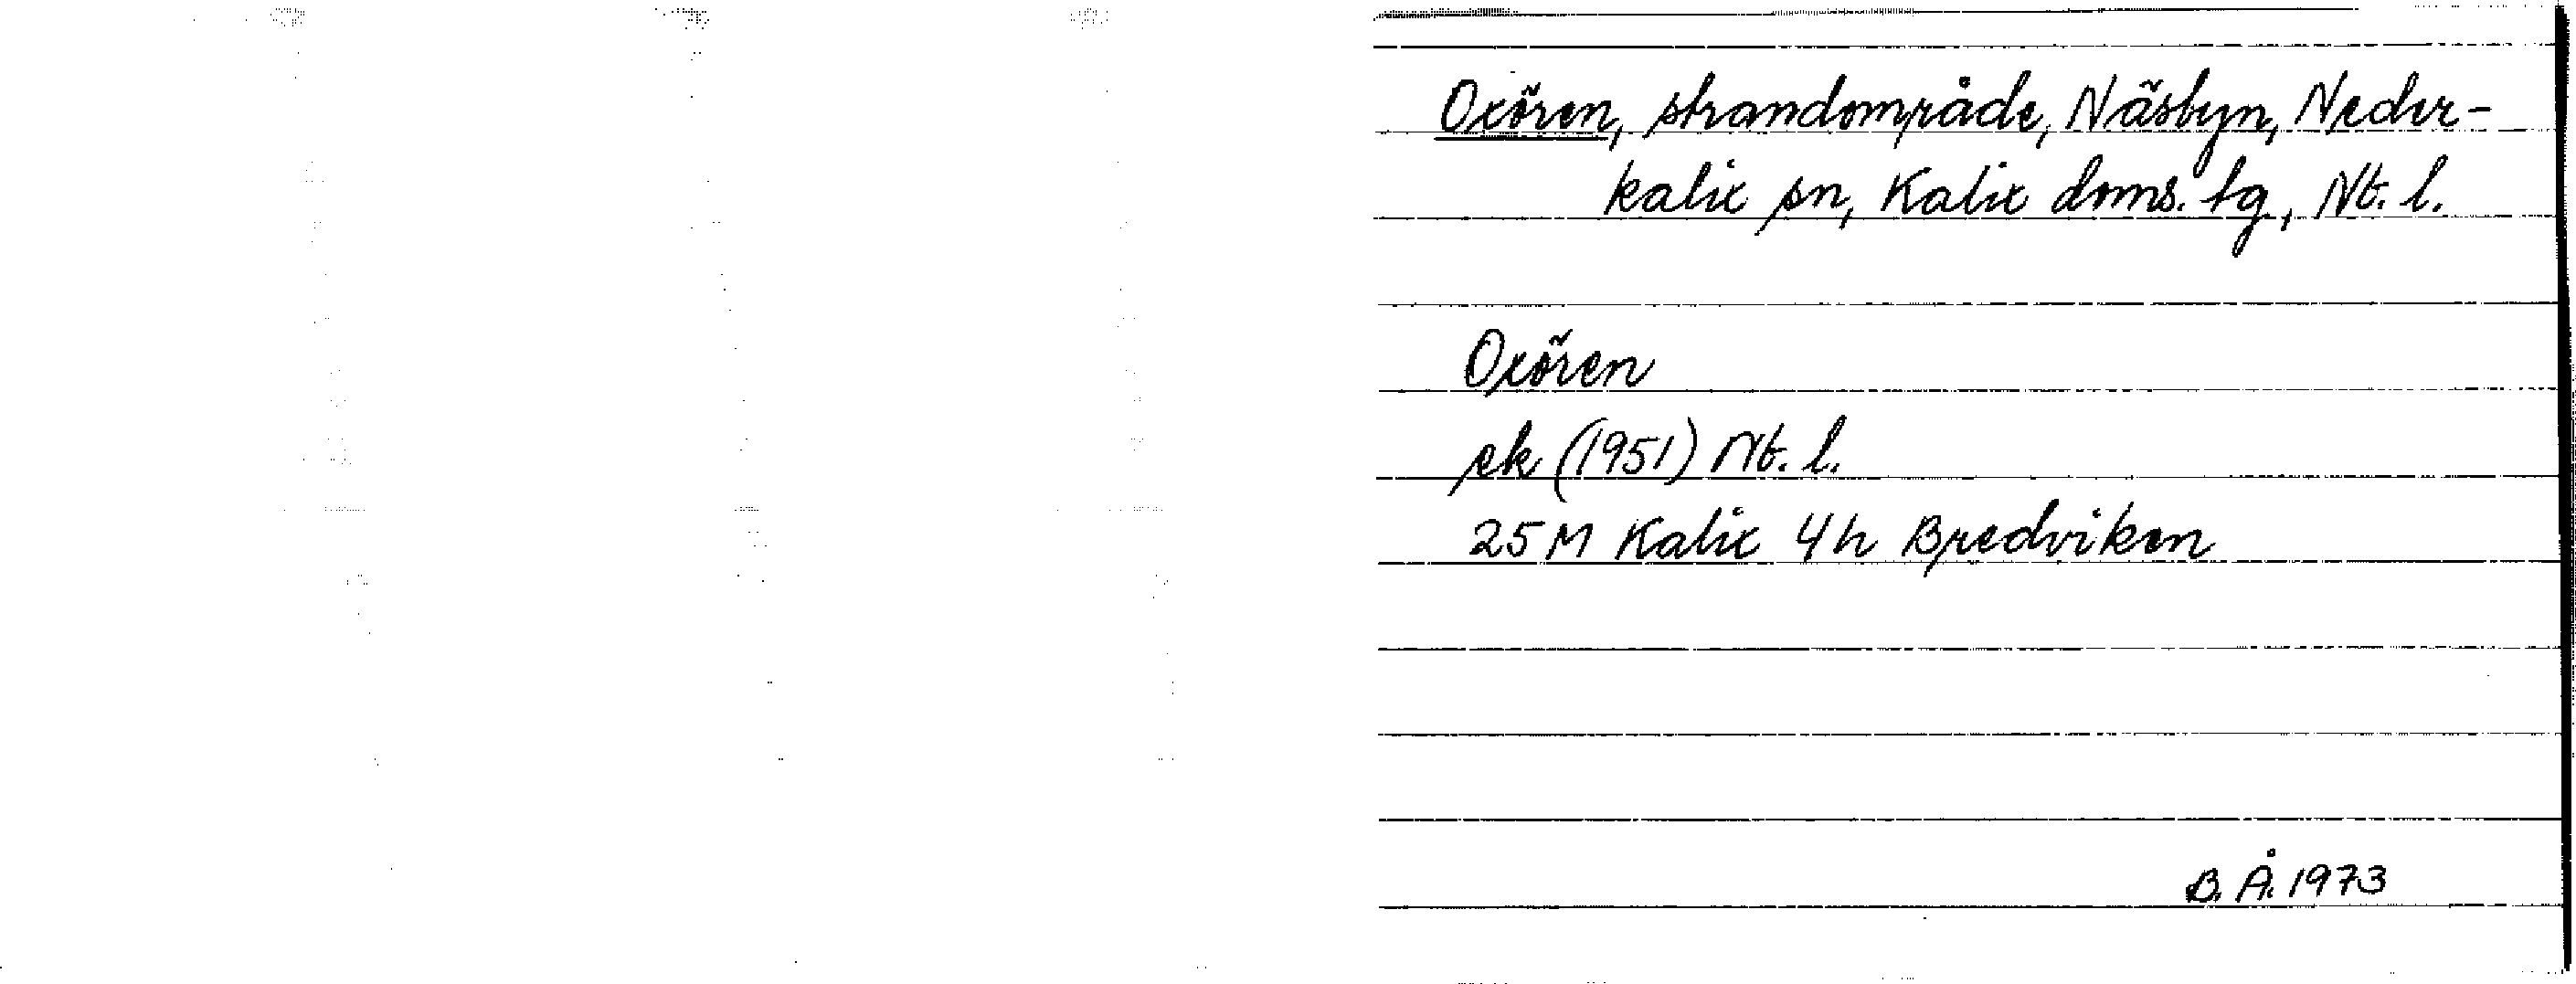 Oxören, strandområde, Näsbyn, Neder-
kalix sn, Kalix doms. tg, Nb. l.
Oxören
ek (1951) Nb. l.
25 M Kalix 4 h Bredviken
B. Å. 1973